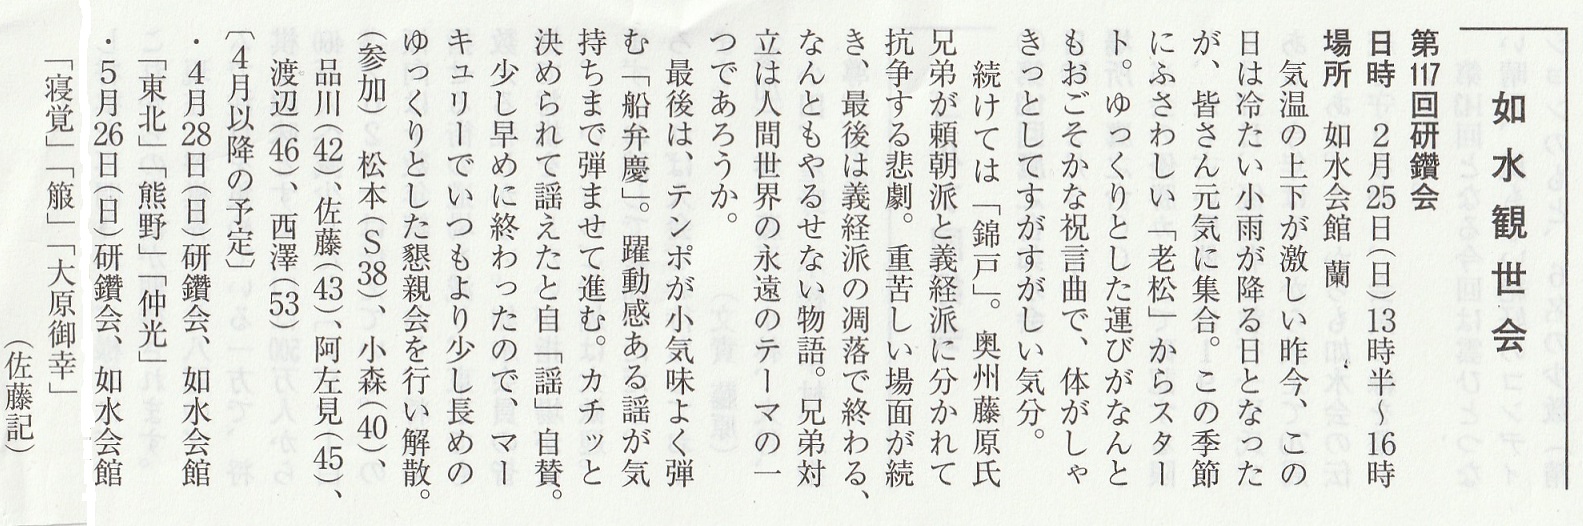 如水観世会
第117回研鑽会
日時　２月25日（日）13時半～16時
場所　如水会館　蘭
　気温の上下が激しい昨今、この
日は冷たい小雨が降る日となった
が、皆さん元気に集合。この季節
にふさわしい「老松」からスター
ト。ゆっくりとした運びがなんと
もおごそかな祝言曲で、体がしゃ
きっとしてすがすがしい気分。
　続けては「錦戸」。奥州藤原氏
兄弟が頼朝派と義経派に分かれて
抗争する悲劇。重苦しい場面が続
き、最後は義経派の凋落で終わる、
なんともやるせない物語。兄弟対
立は人間世界の永遠のテーマの一
つであろうか。
　最後は、テンポが小気味よく弾
む「船弁慶」。躍動感ある謡が気
持ちまで弾ませて進む。カチッと
決められて謡えたと自「謡」自賛。
　少し早めに終わったので、マ
キュリーでいつもより少し長めの
ゆっくりとした懇親会を行い解散。
（参加）　松本（Ｓ38）、小森（40）、
品川（42）、佐藤（43）、阿左見（45）、
渡辺（46）、西澤（53）
〔４月以降の予定〕
・４月28日（日）研鑽会、如水会館
「東北」「熊野」「仲光」
・５月26日（日）研鑽会、如水会館
「寝覚」「箙」「大原御幸」
（佐藤記）